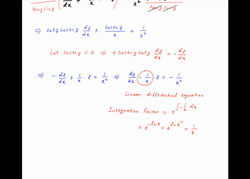 ⇒ Coty Cosecy dy/dx + Cosecy/x = 1/x²
Let Cosecy = z ⇒ + Cosecy Coty dy/dx = - dz/dx
⇒ - dz/dx + 1/x . z = 1/x² ⇒ dz/dx - 1/x z = - 1/x²
Linear differential equation
Integration Factor = e^∫-1/x dx
= e^-lnx = e^lnx⁻¹ = 1/x